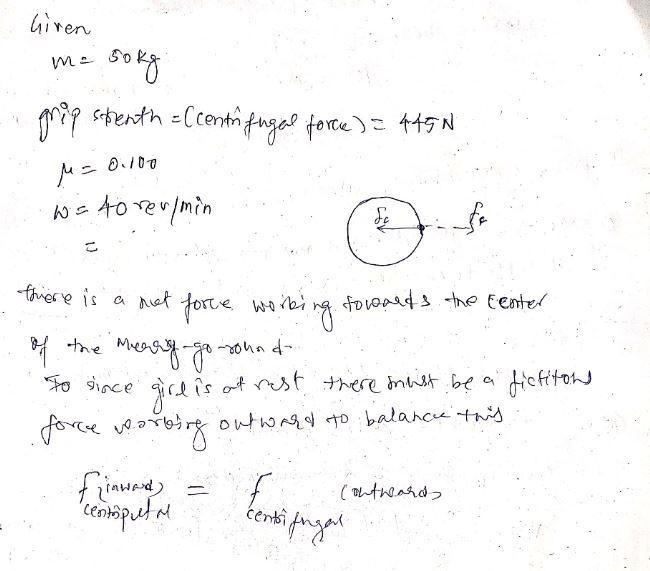 Given
m = 50kg
grip strenth = (centrifugal force) = 445N
μ = 0.100
w = 40 rev/min
=
fc fc
there is a net force working towards the center
of the merry-go-round.
To since girl is at rest there must be a fictitous
force working outward to balance this
f (inwards) = f (outwards
centripetal centrifugal